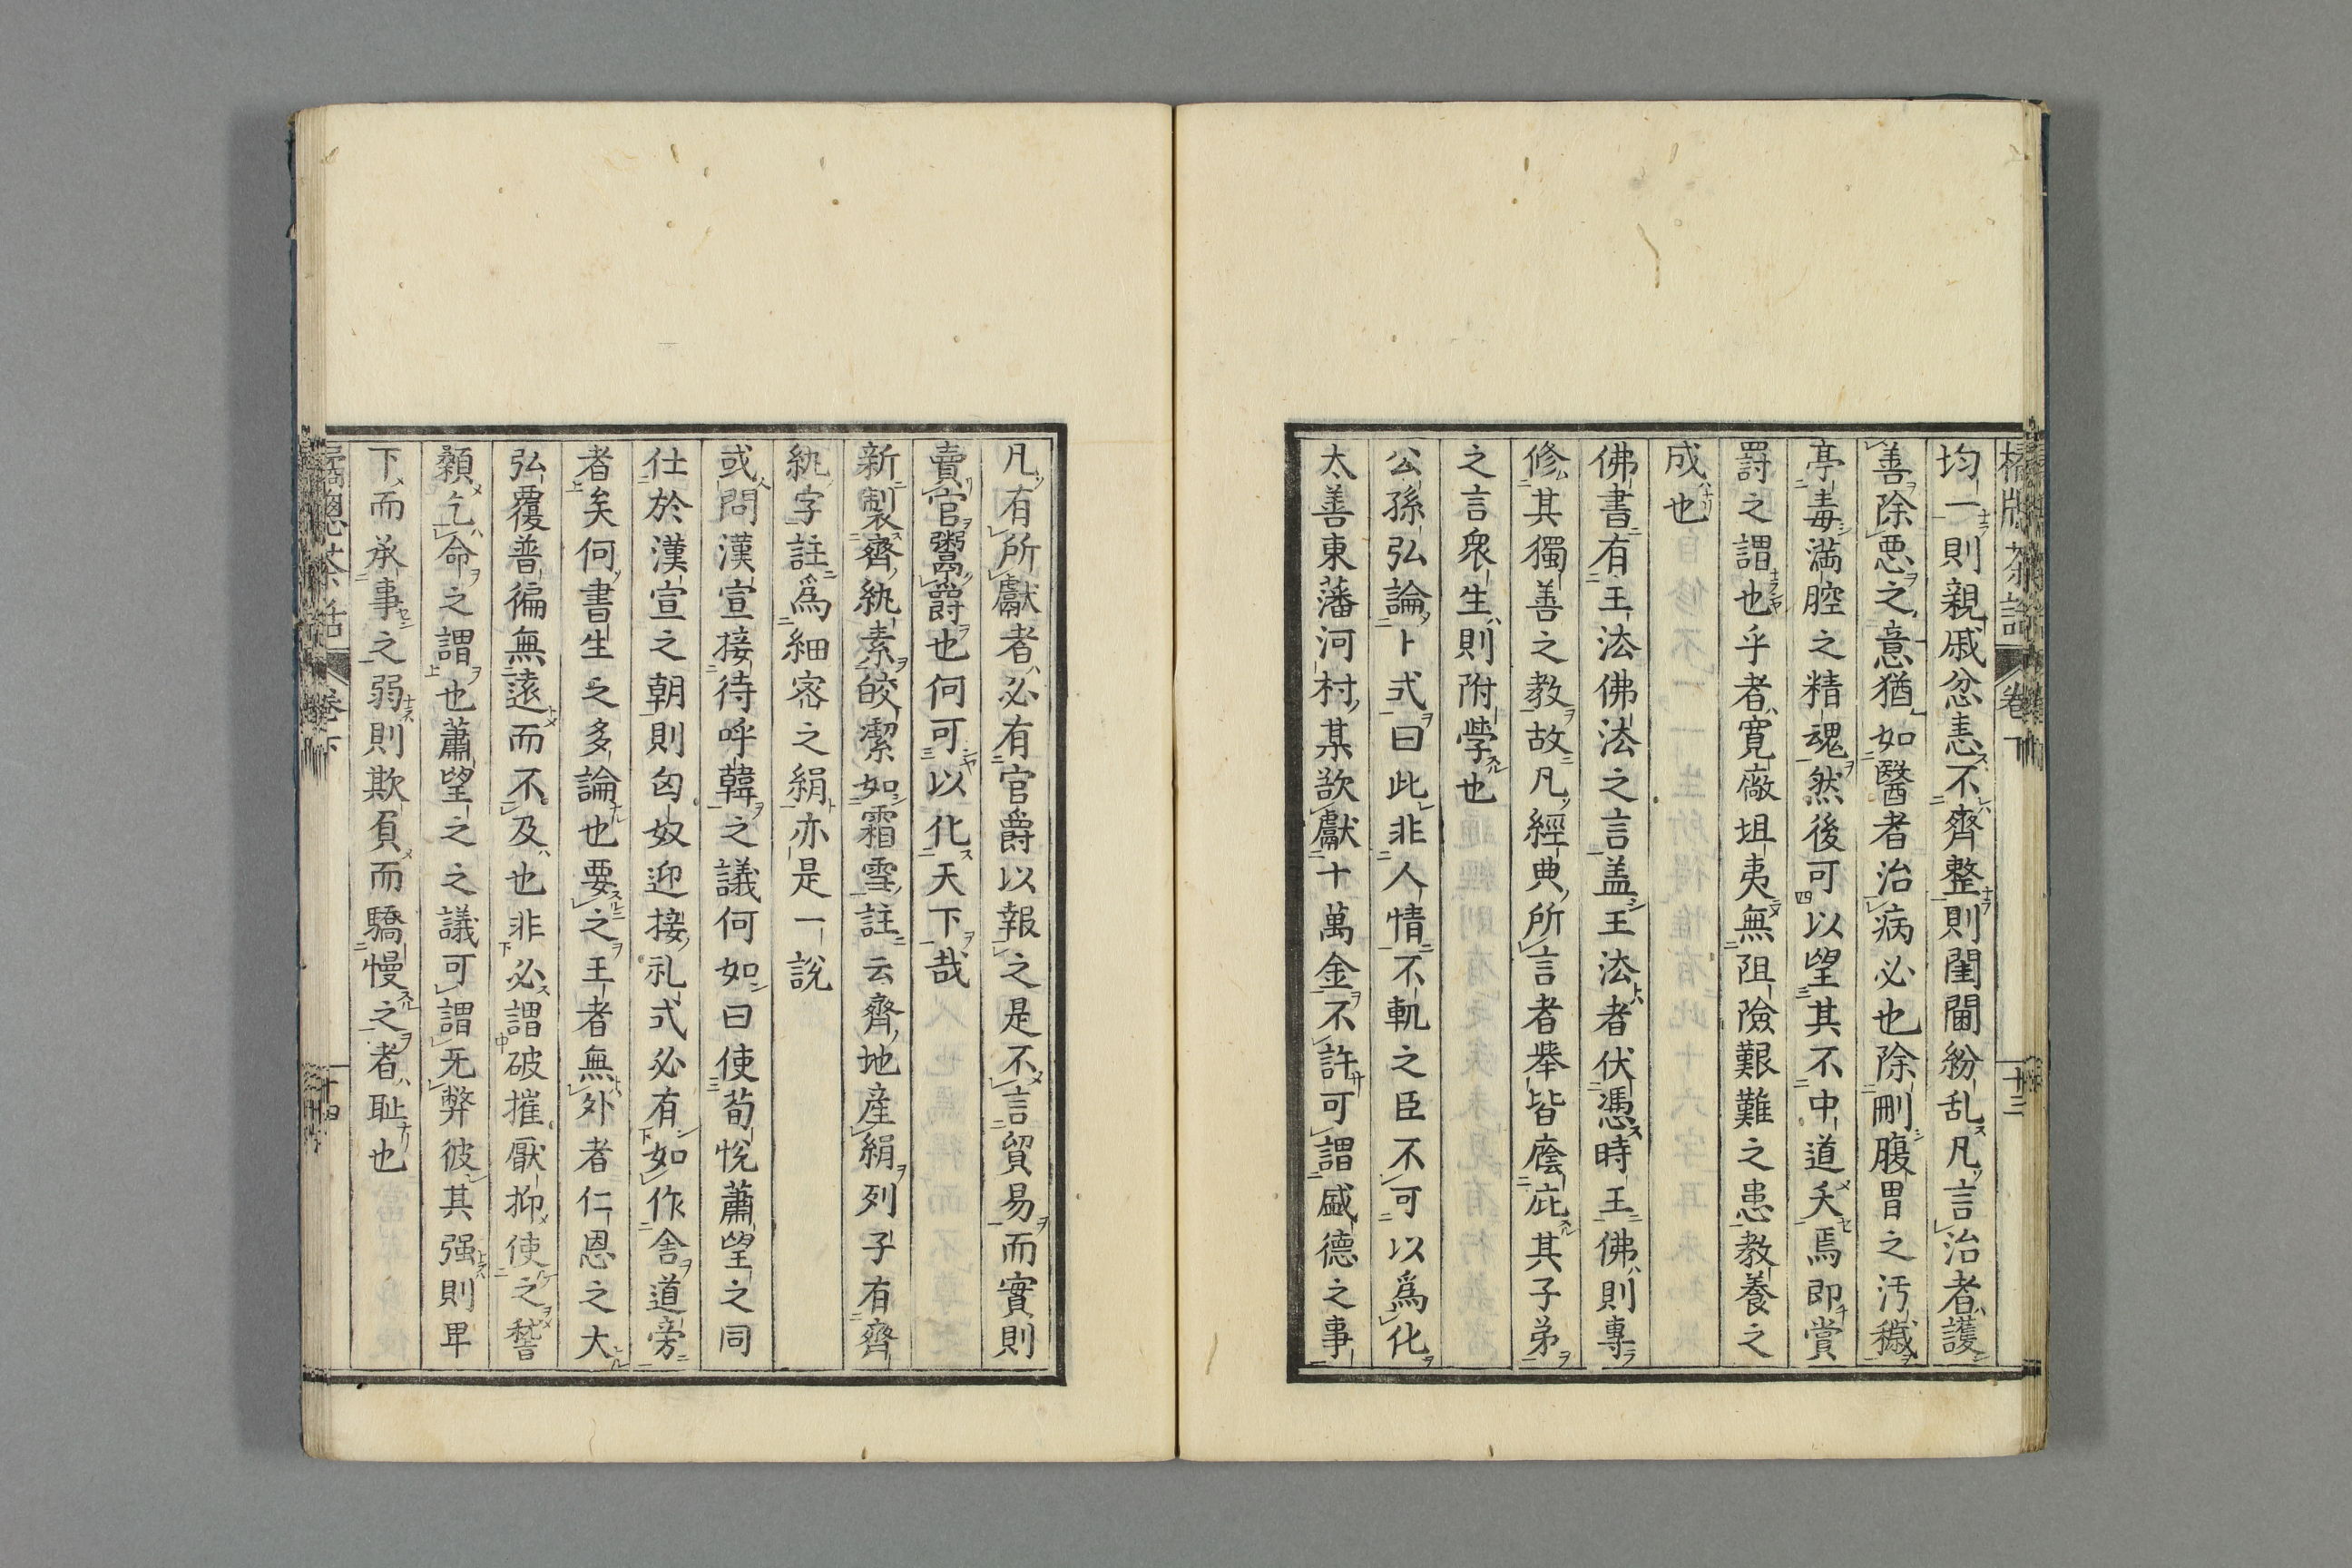 茶話 卷下 十三
均一則親戚忿恚不齊整則閨閫紛乱凡言治者護
善除悪之意猶如醫者治病必也除刪腹胃之汚穢
亭毒満腔之精魂然後可以望其不中道夭焉即賞
罸之謂也乎者寛廠坦夷無阻險艱難之患教養之
成也
佛書有王法佛法之言盖王法者伏憑時王佛則專
修其獨善之教故凡經典所言者舉皆廕庇其子弟
之言衆生則附學也
公孫弘論卜式曰此非人情不軌之臣不可以爲化
太善東藩河村某欲獻十萬金不許可謂盛德之事
凡有所獻者必有官爵以報之是不言貿易而實則
賣官鬻爵也何可以化天下哉
新製齊紈素皎潔如霜雪註云齊地産絹列子有齊
紈字註爲細宻之絹亦是一説
或問漢宣接待呼韓之議何如曰使荀悅蕭望之同
仕於漢宣之朝則匈奴迎接礼式必有如作舎道旁
者矣何書生之多論也要之王者無外者仁恩之大
弘覆普徧無遠而不及也非必謂破摧厭抑使之稽
顙乞命之謂也蕭望之之議可謂无弊彼其强則卑
下而承事之弱則欺負而驕慢之者耻也
茶話 卷下 十四